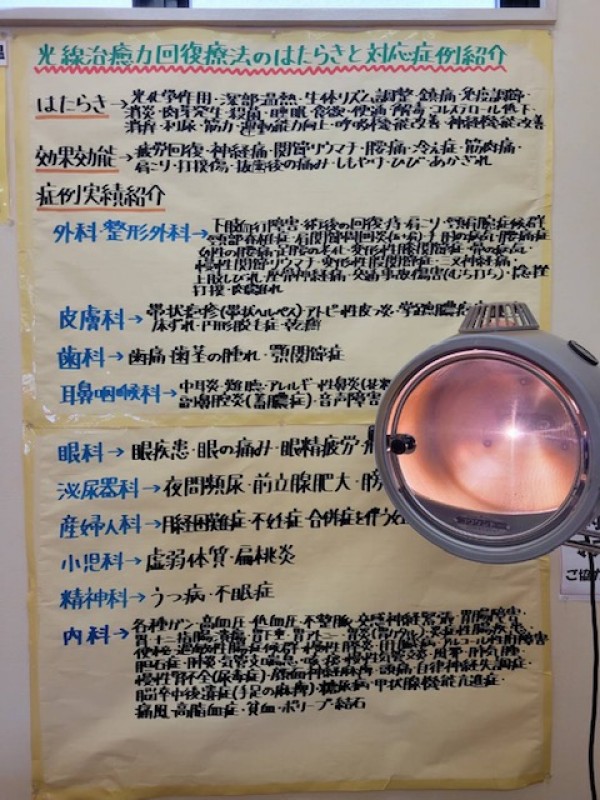 光線治癒力回復療法のはたらきと対応症例紹介
はたらき→光化学作用・深部温熱・生体リズム調整・鎮痛・免疫調節・
消炎・肉芽発生・殺菌・睡眠・食欲・便通・解毒・コレステロール低下・
消痒・利尿・筋力・運動能力向上・呼吸機能改善・神経機能改善
効果効能→疲労回復・神経痛・関節リウマチ・腰痛・冷え症・筋肉痛・
肩こり・打撲傷・抜歯後の痛み・しもやけ・ひび・あかぎれ
症例実績紹介
外科・整形外科→下肢血行障害・術後の回復・痔・肩こり・頸肩腕症候群
変形性膝関節症・
慢性関節リウマチ・変形性股関節症・三叉神経痛・
上肢しびれ・座骨神経痛・交通事故傷害(むち打ち)・捻挫
打撲・
皮膚科→帯状疱疹(帯状ヘルペス)・アトピー性皮フ炎・
床ずれ・円形脱毛症・乾癬
歯科→歯痛・歯茎の腫れ・顎関節症
耳鼻咽喉科→中耳炎・難聴・アレルギー性鼻炎(花粉
副鼻腔炎(蓄膿症)・音声障害
眼科→眼疾患・眼の痛み・眼精疲労・
泌尿器科→夜間頻尿・前立腺肥大・膀
産婦人科→月経困難症・不妊症・合併症を伴う妊
小児科→虚弱体質・扁桃炎
精神科→うつ病・不眠症
内科→各種ガン・高血圧・低血圧・不整脈・交感神経緊張・胃腸障害・
胃十二指腸潰瘍・胃下垂・胃アトニー・胃炎(胃カタル)・
便秘・過敏性腸症候群・慢性肝炎・肝硬変・アルコール性肝障害
胆石症・肺炎・気管支喘息・咳・痰・慢性気管支炎・風邪・肺気腫・
慢性腎不全(尿毒症)・顔面神経麻痺・頭痛・自律神経失調症・
脳卒中後遺症(手足の麻痺)・糖尿病・甲状腺機能亢進症・
痛風・高脂血症・貧血・ポリープ・結石
ご協